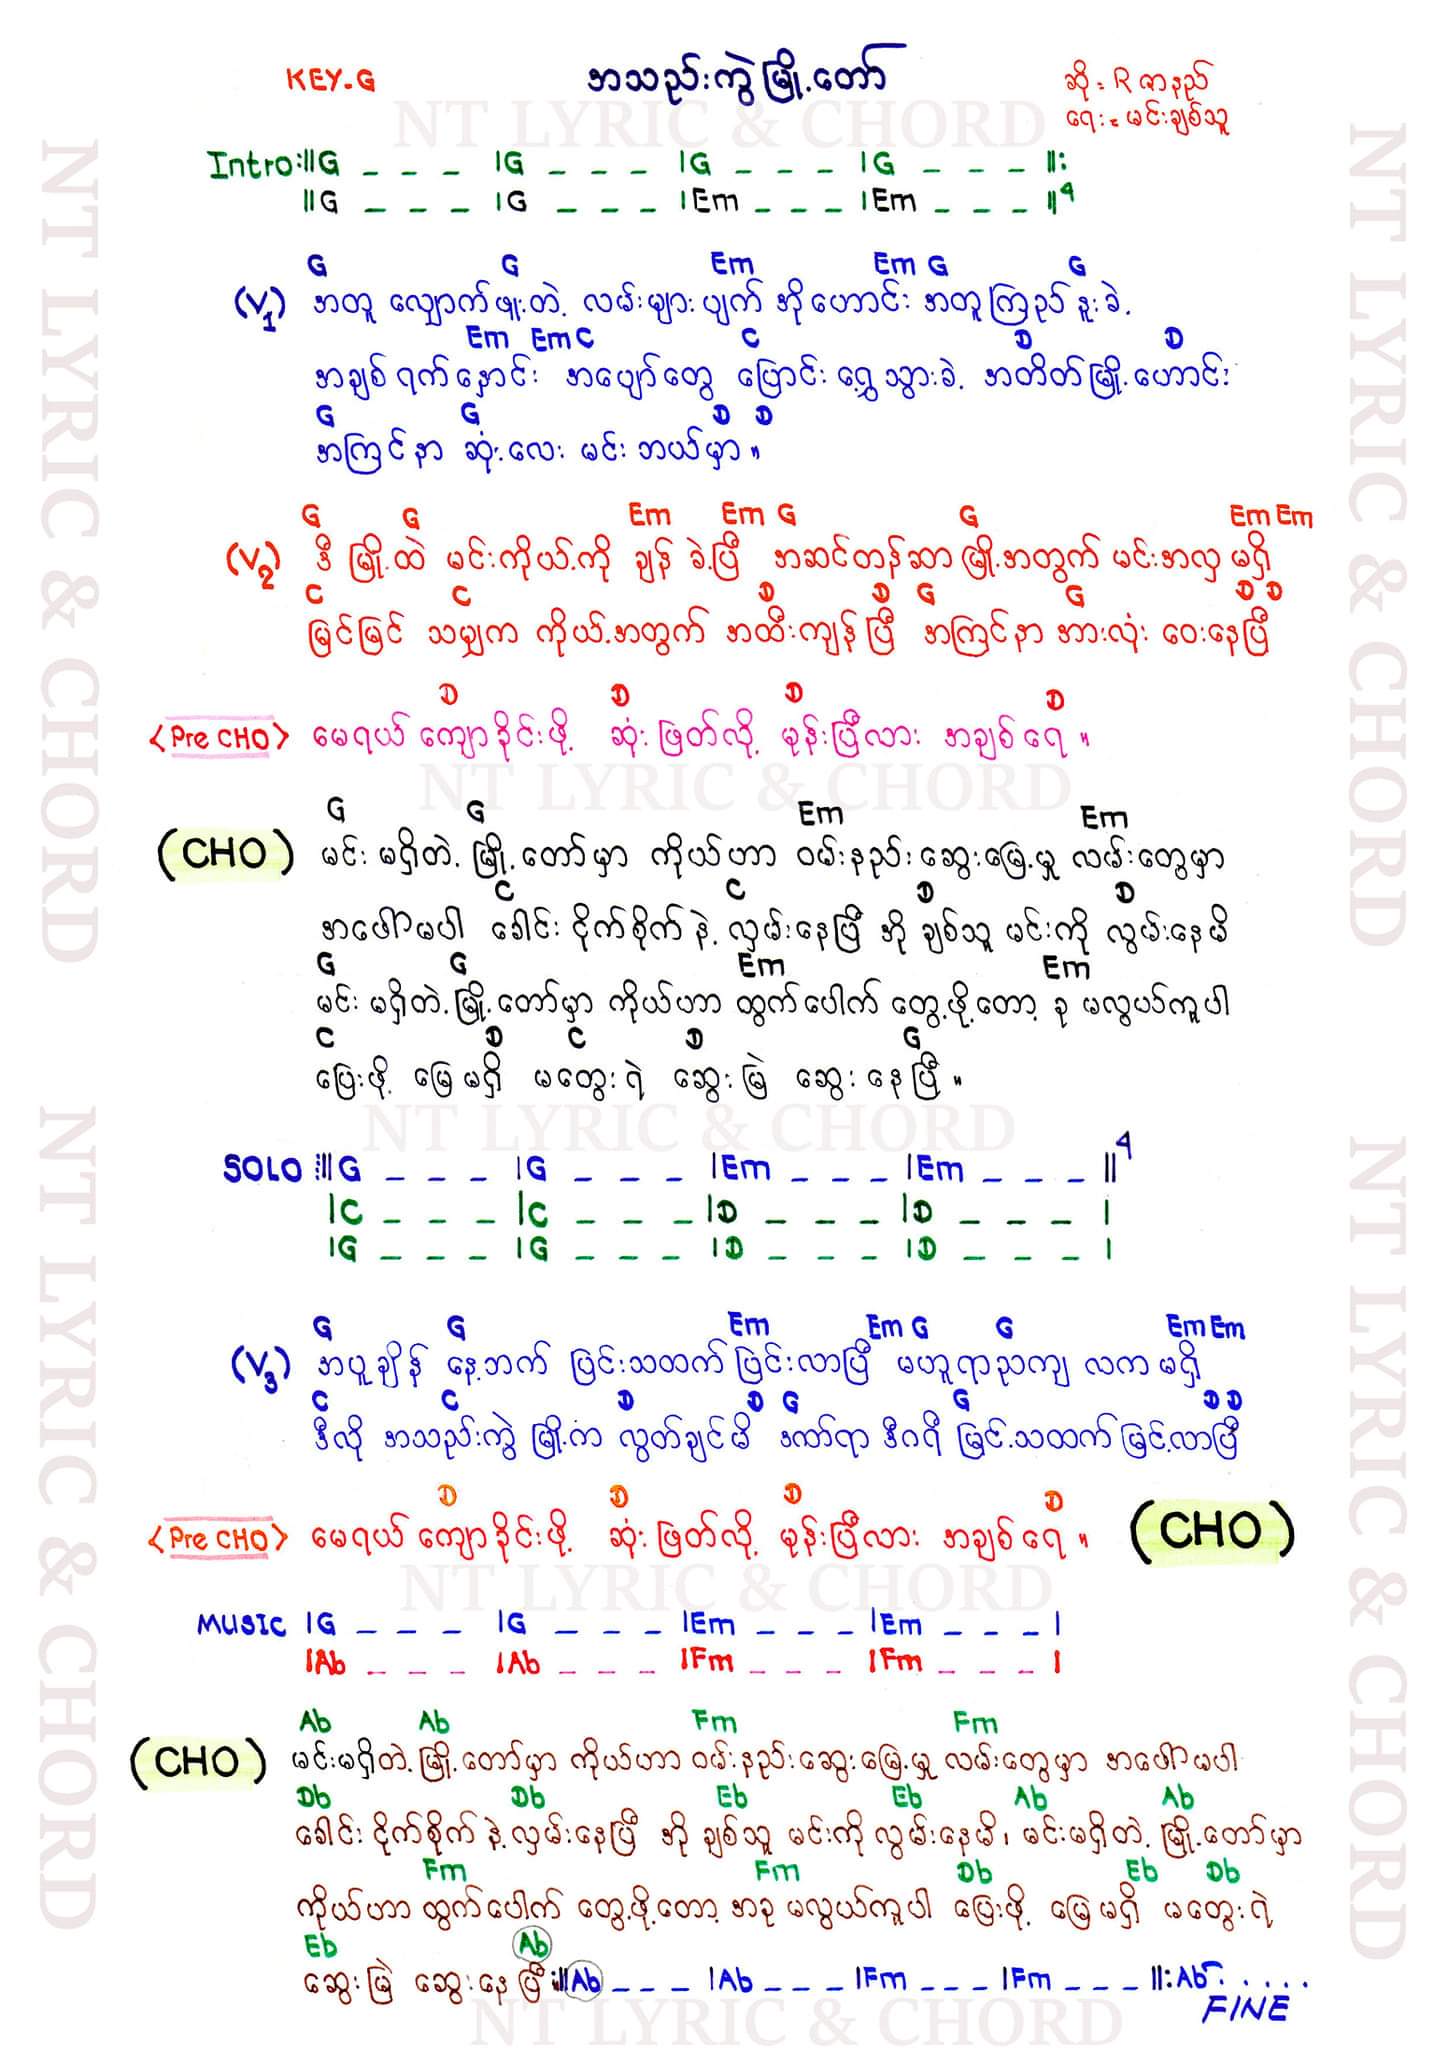 KEY-G
အသည်းကွဲမြို့တော်
ဆို = R ဇာနည်
ရေး = မင်းချစ်သူ
NT LYRIC & CHORD
Intro :||G _ _ _ |G _ _ _ |G _ _ _ |G _ _ _ ||:
||G _ _ _ |G _ _ _ |Em _ _ _ |Em _ _ _ ||4
G G Em Em G G
(V1) အတူ လျှောက်ဖူးတဲ့ လမ်းများပျက် အိုဟောင်း အတူကြည်နူးခဲ့
Em Em C C D D
အချစ်ရက်နှောင်း အပျော်တွေ ပြောင်းရွှေ့သွားခဲ့ အတိတ်မြို့ဟောင်း
G G D D
အကြင်နာ ဆုံးလေး မင်းဘယ်မှာ။
G G Em Em G G Em Em
(V2) ဒီမြို့ထဲ မင်းကိုယ့်ကို ချန်ခဲ့ပြီ အဆင်တန်ဆာ မြို့အတွက် မင်းအလှ မရှိ
C C D D G G D D
မြင်မြင်သမျှက ကိုယ့်အတွက် အထီးကျန်ပြီ အကြင်နာ အားလုံး ဝေးနေပြီ
D D D D
<Pre CHO> မေရယ် ကျောခိုင်းဖို့ ဆုံးဖြတ်လို့ မုန်းပြီလား အချစ်ရေ။
NT LYRIC & CHORD
G G Em Em
(CHO) မင်းမရှိတဲ့ မြို့တော်မှာ ကိုယ်ဟာ ဝမ်းနည်းဆွေးမြေ့မှု လမ်းတွေမှာ
C C D D
အဖေါ်မပါ ခေါင်းငိုက်စိုက်နဲ့ လှမ်းနေပြီ အို ချစ်သူ မင်းကို လွမ်းနေမိ
G G Em Em
မင်းမရှိတဲ့ မြို့တော်မှာ ကိုယ်ဟာ ထွက်ပေါက် တွေ့ဖို့တော့ ခု မလွယ်ကူပါ
C D C D G
ပြေးဖို့ မြေမရှိ မတွေးရဲ ဆွေးမြဲ ဆွေးနေပြီ။
NT LYRIC & CHORD
SOLO :||G _ _ _ |G _ _ _ |Em _ _ _ |Em _ _ _ ||4
|C _ _ _ |C _ _ _ |D _ _ _ |D _ _ _ |
|G _ _ _ |G _ _ _ |D _ _ _ |D _ _ _ |
G G Em Em G G Em Em
(V3) အပူချိန် နေ့ဘက် ပြင်းသထက်ပြင်းလာပြီ မဟူရာညကျ လက မရှိ
C C D D G G D D
ဒီလို အသည်းကွဲမြို့က လွတ်ချင်မိ ဒဏ်ရာ ဒီဂရီ မြင့်သထက် မြင့်လာပြီ
D D D D
<Pre CHO> မေရယ် ကျောခိုင်းဖို့ ဆုံးဖြတ်လို့ မုန်းပြီလား အချစ်ရေ။ (CHO)
NT LYRIC & CHORD
MUSIC |G _ _ _ |G _ _ _ |Em _ _ _ |Em _ _ _ |
|Ab _ _ _ |Ab _ _ _ |Fm _ _ _ |Fm _ _ _ |
Ab Ab Fm Fm
(CHO) မင်းမရှိတဲ့ မြို့တော်မှာ ကိုယ်ဟာ ဝမ်းနည်းဆွေးမြေ့မှု လမ်းတွေမှာ အဖေါ်မပါ
Db Db Eb Eb Ab Ab
ခေါင်းငိုက်စိုက်နဲ့ လှမ်းနေပြီ အို ချစ်သူ မင်းကို လွမ်းနေမိ၊ မင်းမရှိတဲ့ မြို့တော်မှာ
Fm Fm Db Eb Db
ကိုယ်ဟာ ထွက်ပေါက် တွေ့ဖို့တော့ အခု မလွယ်ကူပါ ပြေးဖို့ မြေမရှိ မတွေးရဲ
Eb Ab
ဆွေးမြဲ ဆွေးနေပြီ :||Ab _ _ _ |Ab _ _ _ |Fm _ _ _ |Fm _ _ _ ||: Ab . . . .
FINE
NT LYRIC & CHORD
NT LYRIC & CHORD
NT LYRIC & CHORD
NT LYRIC & CHORD
NT LYRIC & CHORD